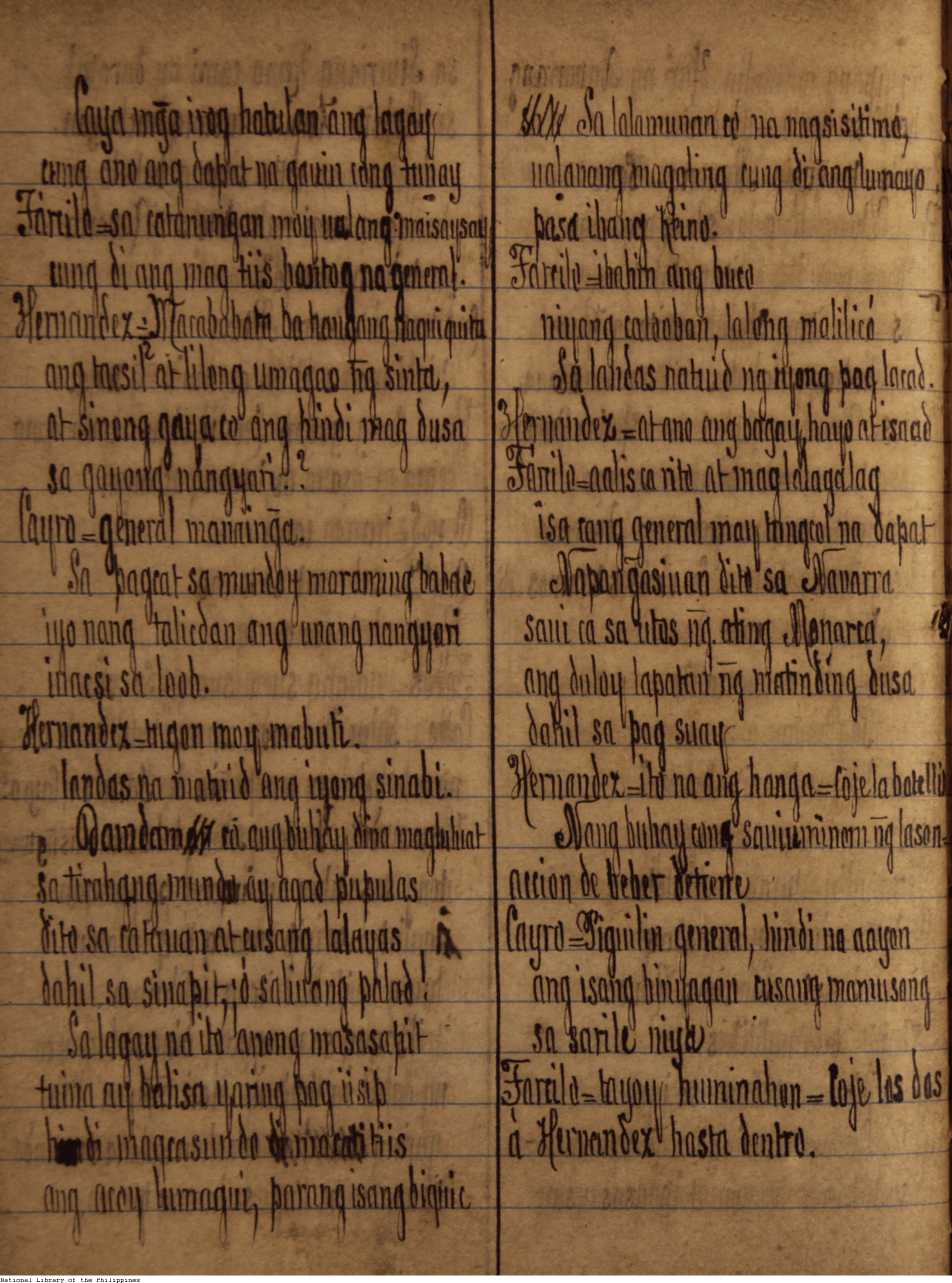 Caya mg̃a irog hatulan ang lagay
cung ano ang dapat na gauin cong tunay
Farcilo=sa catanungan moy ualang maisaysay
cung di ang mag tiis bantog na general.
Hernandez=Macababata ba haugang naquiquita
ang tacsil at lilong umagao ñg sinta,
at sinong gaya co ang hindi mag dusa
sa gayong nangyari??
Cayro=general manainga.
Sa pagcat sa munday maraming babae
iyo nang talicdan ang unang nangyari
inacsi sa loob.
Hernandez=tugon moy mabuti.
landas na matuid ang iyong sinabi.
Damdam co ang buhay dina magtutuat
sa tirahang mundo ay agad pupulas
dito sa catauan at cusang lalayas
dahil sa sinapit, ó saliuang palad!
Sa lagay na ito anong masasapit
tuina ay balisa yaring pag iisip
hindi magcasundo di macatitiis
ang acoy lumagui, parang isang biguic
Sa lalamunan co na nagsisitimo,
ualanang magaling cung di ang lumayo
pasa ibang Reino.
Farcilo=ibahin ang buco
niyang calooban, lalong malilicó
Sa landas natuid ng iyong pag lacad.
Hernandez=at ano ang bagay, hayo at isaad
Farcilo=aalis ca rito at maglalagalag
isa cang general may tungcol na dapat
Napangasiuan dito sa Navarra
saui ca sa utos n̄g ating Monarca,
ang duloy lapatan n̄g matinding dusa
dahil sa pag suay
Hernandez=ito na ang hanga=Coje la botella
Nang buhay cong saui uminom n̄g lason=
accion de beber detiene
Cayro=Piguilin general, hindi na aayon
ang isang binyagan cusang mamusong
sa sarile niya
Farcilo=tayoy huminahon=Coje los dos
à Hernandez hasta dentro.
National Library of the Philippines